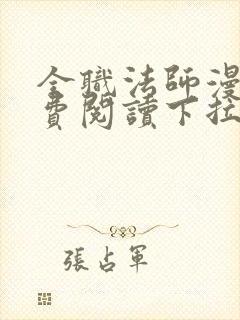 全職法師漫
費閱讀下拉
張占軍